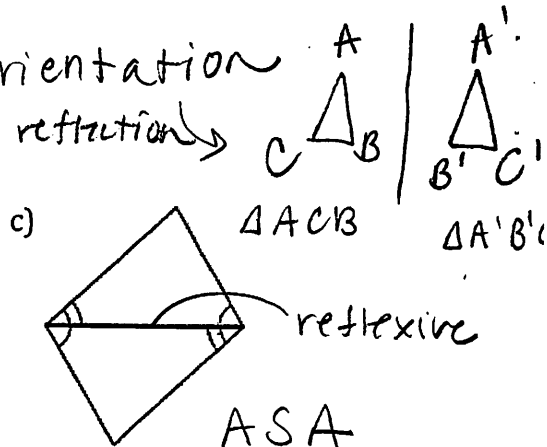 rientation
reflection
A
C
B
A'
B'
C'
c)
ΔACB
ΔA'B'C
reflexive
ASA